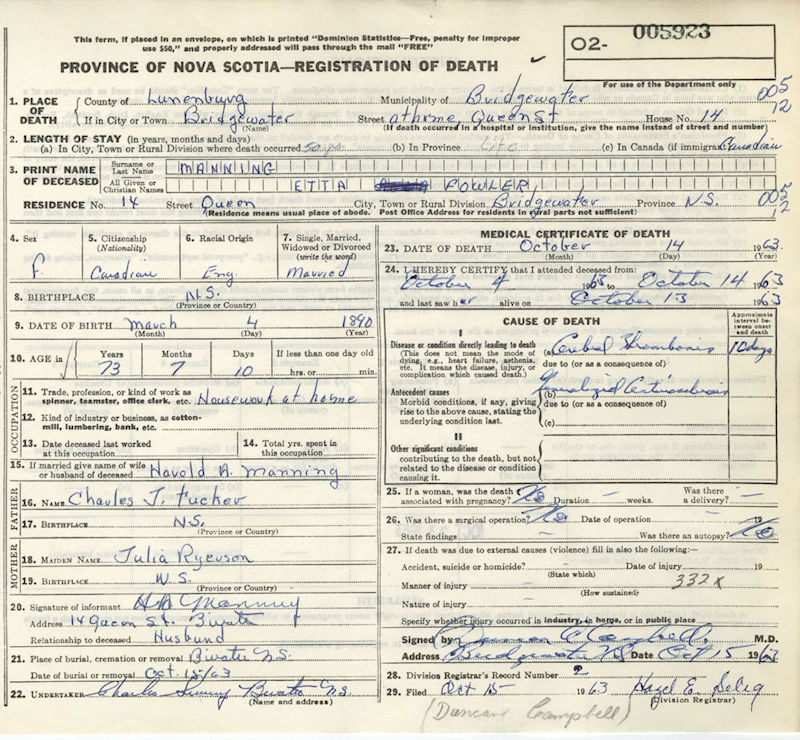 This form, if placed in an envelope, on which is printed "Dominion Statistics—Free, penalty for improper
use $50," and properly addressed will pass through the mail "FREE"
O2- 005923
PROVINCE OF NOVA SCOTIA—REGISTRATION OF DEATH
For use of the Department only
1. PLACE OF DEATH { County of Lunenburg Municipality of Bridgewater 005
If in City or Town Bridgewater Street at home, Queen St House No. 14 12
(Name) (If death occurred in a hospital or institution, give the name instead of street and number)
2. LENGTH OF STAY (in years, months and days)
(a) In City, Town or Rural Division where death occurred (b) In Province Life (c) In Canada (if immigrant) Canadian
3. PRINT NAME OF DECEASED { Surname or Last Name MANNING
All Given or Christian Names ETTA FOWLER
RESIDENCE No. 14 Street Queen City, Town or Rural Division Bridgewater Province N.S. 005
(Residence means usual place of abode. Post Office Address for residents in rural parts not sufficient) 12
4. Sex 5. Citizenship (Nationality) 6. Racial Origin 7. Single, Married, Widowed or Divorced (write the word)
F. Canadian Eng. Married
8. BIRTHPLACE N.S.
(Province or Country)
9. DATE OF BIRTH March 4 1890
(Month) (Day) (Year)
10. AGE in { Years Months Days If less than one day old
73 7 10 hrs. or min.
OCCUPATION
11. Trade, profession, or kind of work as spinner, teamster, office clerk, etc. Housework at home
12. Kind of industry or business, as cotton-mill, lumbering, bank, etc.
13. Date deceased last worked at this occupation 14. Total yrs. spent in this occupation
15. If married give name of wife or husband of deceased Harold A. Manning
FATHER
16. NAME Charles J. Tucker
17. BIRTHPLACE N.S.
(Province or Country)
MOTHER
18. MAIDEN NAME Julia Ryerson
19. BIRTHPLACE N.S.
(Province or Country)
20. Signature of informant Manning
Address 14 Queen St. B'water
Relationship to deceased Husband
21. Place of burial, cremation or removal B'water N.S.
Date of burial or removal Oct. 15/63
22. UNDERTAKER Charles B'water N.S.
(Name and address)
MEDICAL CERTIFICATE OF DEATH
23. DATE OF DEATH October 14 1963.
(Month) (Day) (Year)
24. I HEREBY CERTIFY that I attended deceased from:
October 4 1963 to October 14 1963
and last saw her alive on October 13 1963
CAUSE OF DEATH
Approximate interval between onset and death
I
Disease or condition directly leading to death (a) Cerebral Thrombosis 10 days
(This does not mean the mode of dying, e.g., heart failure, asthenia, etc. It means the disease, injury, or complication which caused death.)
due to (or as a consequence of)
Antecedent causes (b) Generalized Arteriosclerosis
Morbid conditions, if any, giving rise to the above cause, stating the underlying condition last.
due to (or as a consequence of)
(c)
II
Other significant conditions
contributing to the death, but not related to the disease or condition causing it.
25. If a woman, was the death associated with pregnancy? No Duration — weeks. Was there a delivery? —
26. Was there a surgical operation? No Date of operation — 19
State findings — Was there an autopsy? No
27. If death was due to external causes (violence) fill in also the following:—
Accident, suicide or homicide? Date of injury 19
(State which) 332x
Manner of injury
(How sustained)
Nature of injury
Specify whether injury occurred in industry, in home, or in public place
Signed by Duncan C Campbell M.D.
Address Bridgewater NS Date Oct 15 1963
28. Division Registrar's Record Number 2
29. Filed Oct 15 1963 Hazel E. Selig
(Division Registrar)
(Duncan Campbell)